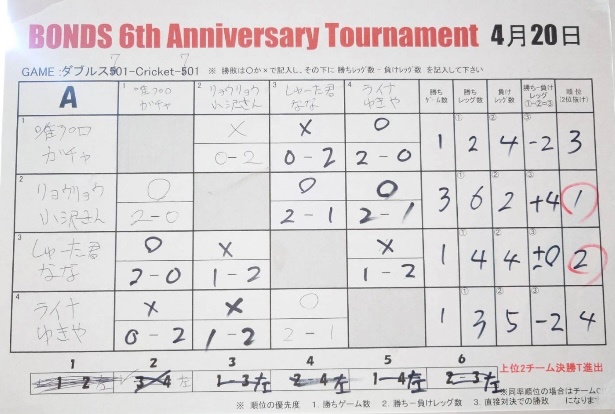 BONDS 6th Anniversary Tournament 4月20日
GAME:ダブルス501-Cricket-501 ※ 勝敗は○か×で記入し、その下に 勝ちレッグ数 - 負けレッグ数 を記入して下さい
7 7
A
1 唯プロ ガチャ
2 リョウリョウ 小沢さん
3 しゅーた君 なな
4 ライナ ゆきや
勝ちゲーム数
勝ちレッグ数
負けレッグ数
勝ち-負けレッグ ①-②=③
順位 (2位抜け)
1 唯プロ ガチャ
× × ○
0-2 0-2 2-0
1 ① 2 ② 4 ③ -2 3
2 リョウリョウ 小沢さん
○ ○ ○
2-0 2-1 2-1
3 ① 6 ② 2 ③ +4 1
3 しゅーた君 なな
○ × ×
2-0 1-2 1-2
1 ① 4 ② 4 ③ ±0 2
4 ライナ ゆきや
× × ○
0-2 1-2 2-1
1 ① 3 ② 5 ③ -2 4
1 2 3 4 5 6
1 2 左 3 4 左 1-3 左 2-4 左 1-4 左 2-3 左
上位2チーム決勝T進出
※同率順位の場合はチーム
※ 順位の優先度 1. 勝ちゲーム数 2. 勝ち-負けレッグ数 3. 直接対決での勝敗 になりま